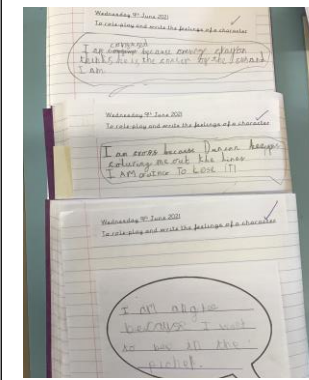 Wednesday 9th June 2021
To role-play and write the feelings of a character
I am because crayon
thinks he is the of the
I am
Wednesday 9th June 2021
To role-play and write the feelings of a character
I am cross because Duncan keeps
coluring me out the lines
I AM GOING TO LOSE IT!
Wednesday 9th June 2021
To role-play and write the feelings of a character
I am
because I
to be in the